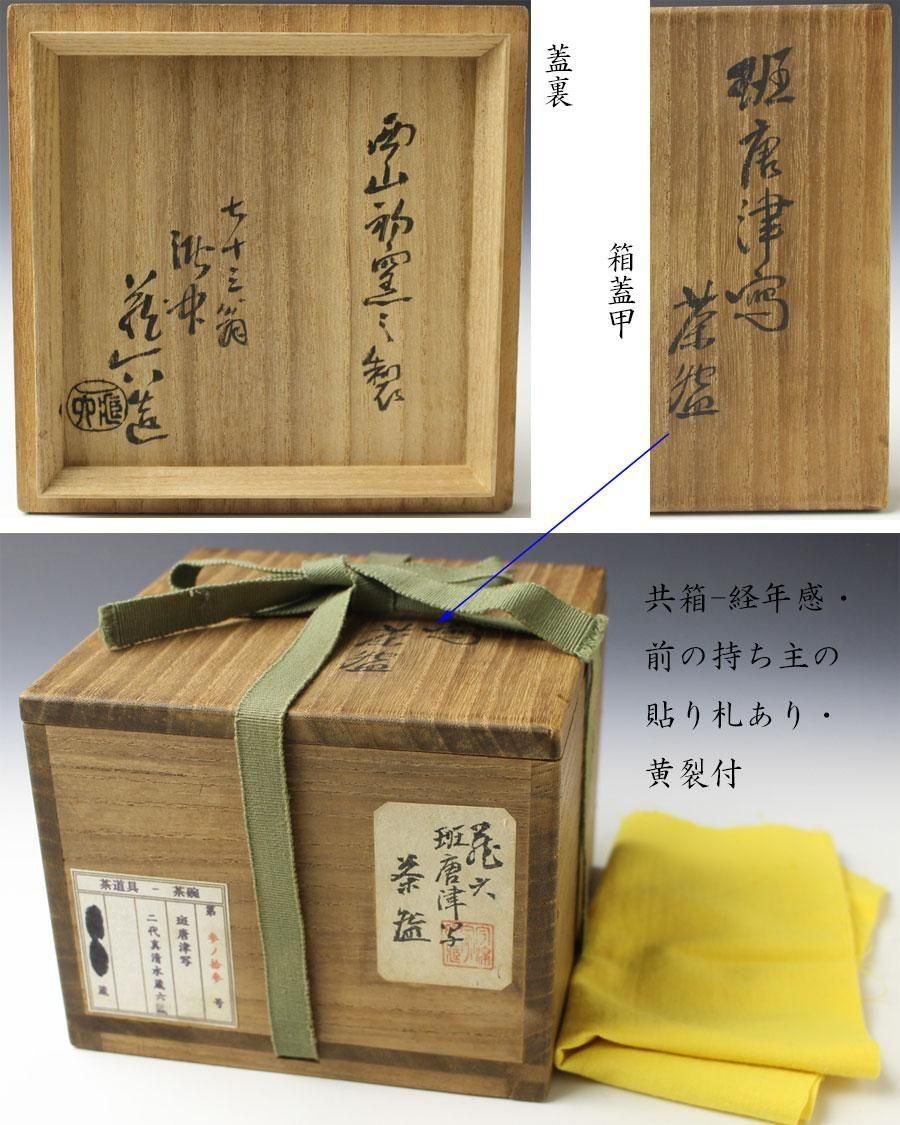 蓋裏
西山初窯之製
七十三翁
蔵六造
箱蓋甲
班唐津寫
茶盌
共箱−経年感・
前の持ち主の
貼り札あり・
黄裂付
寫
茶盌
蔵六
班唐津写
茶盌
茶道具 − 茶碗
第 参ノ拾参 号
斑唐津写
二代真清水蔵六
蔵